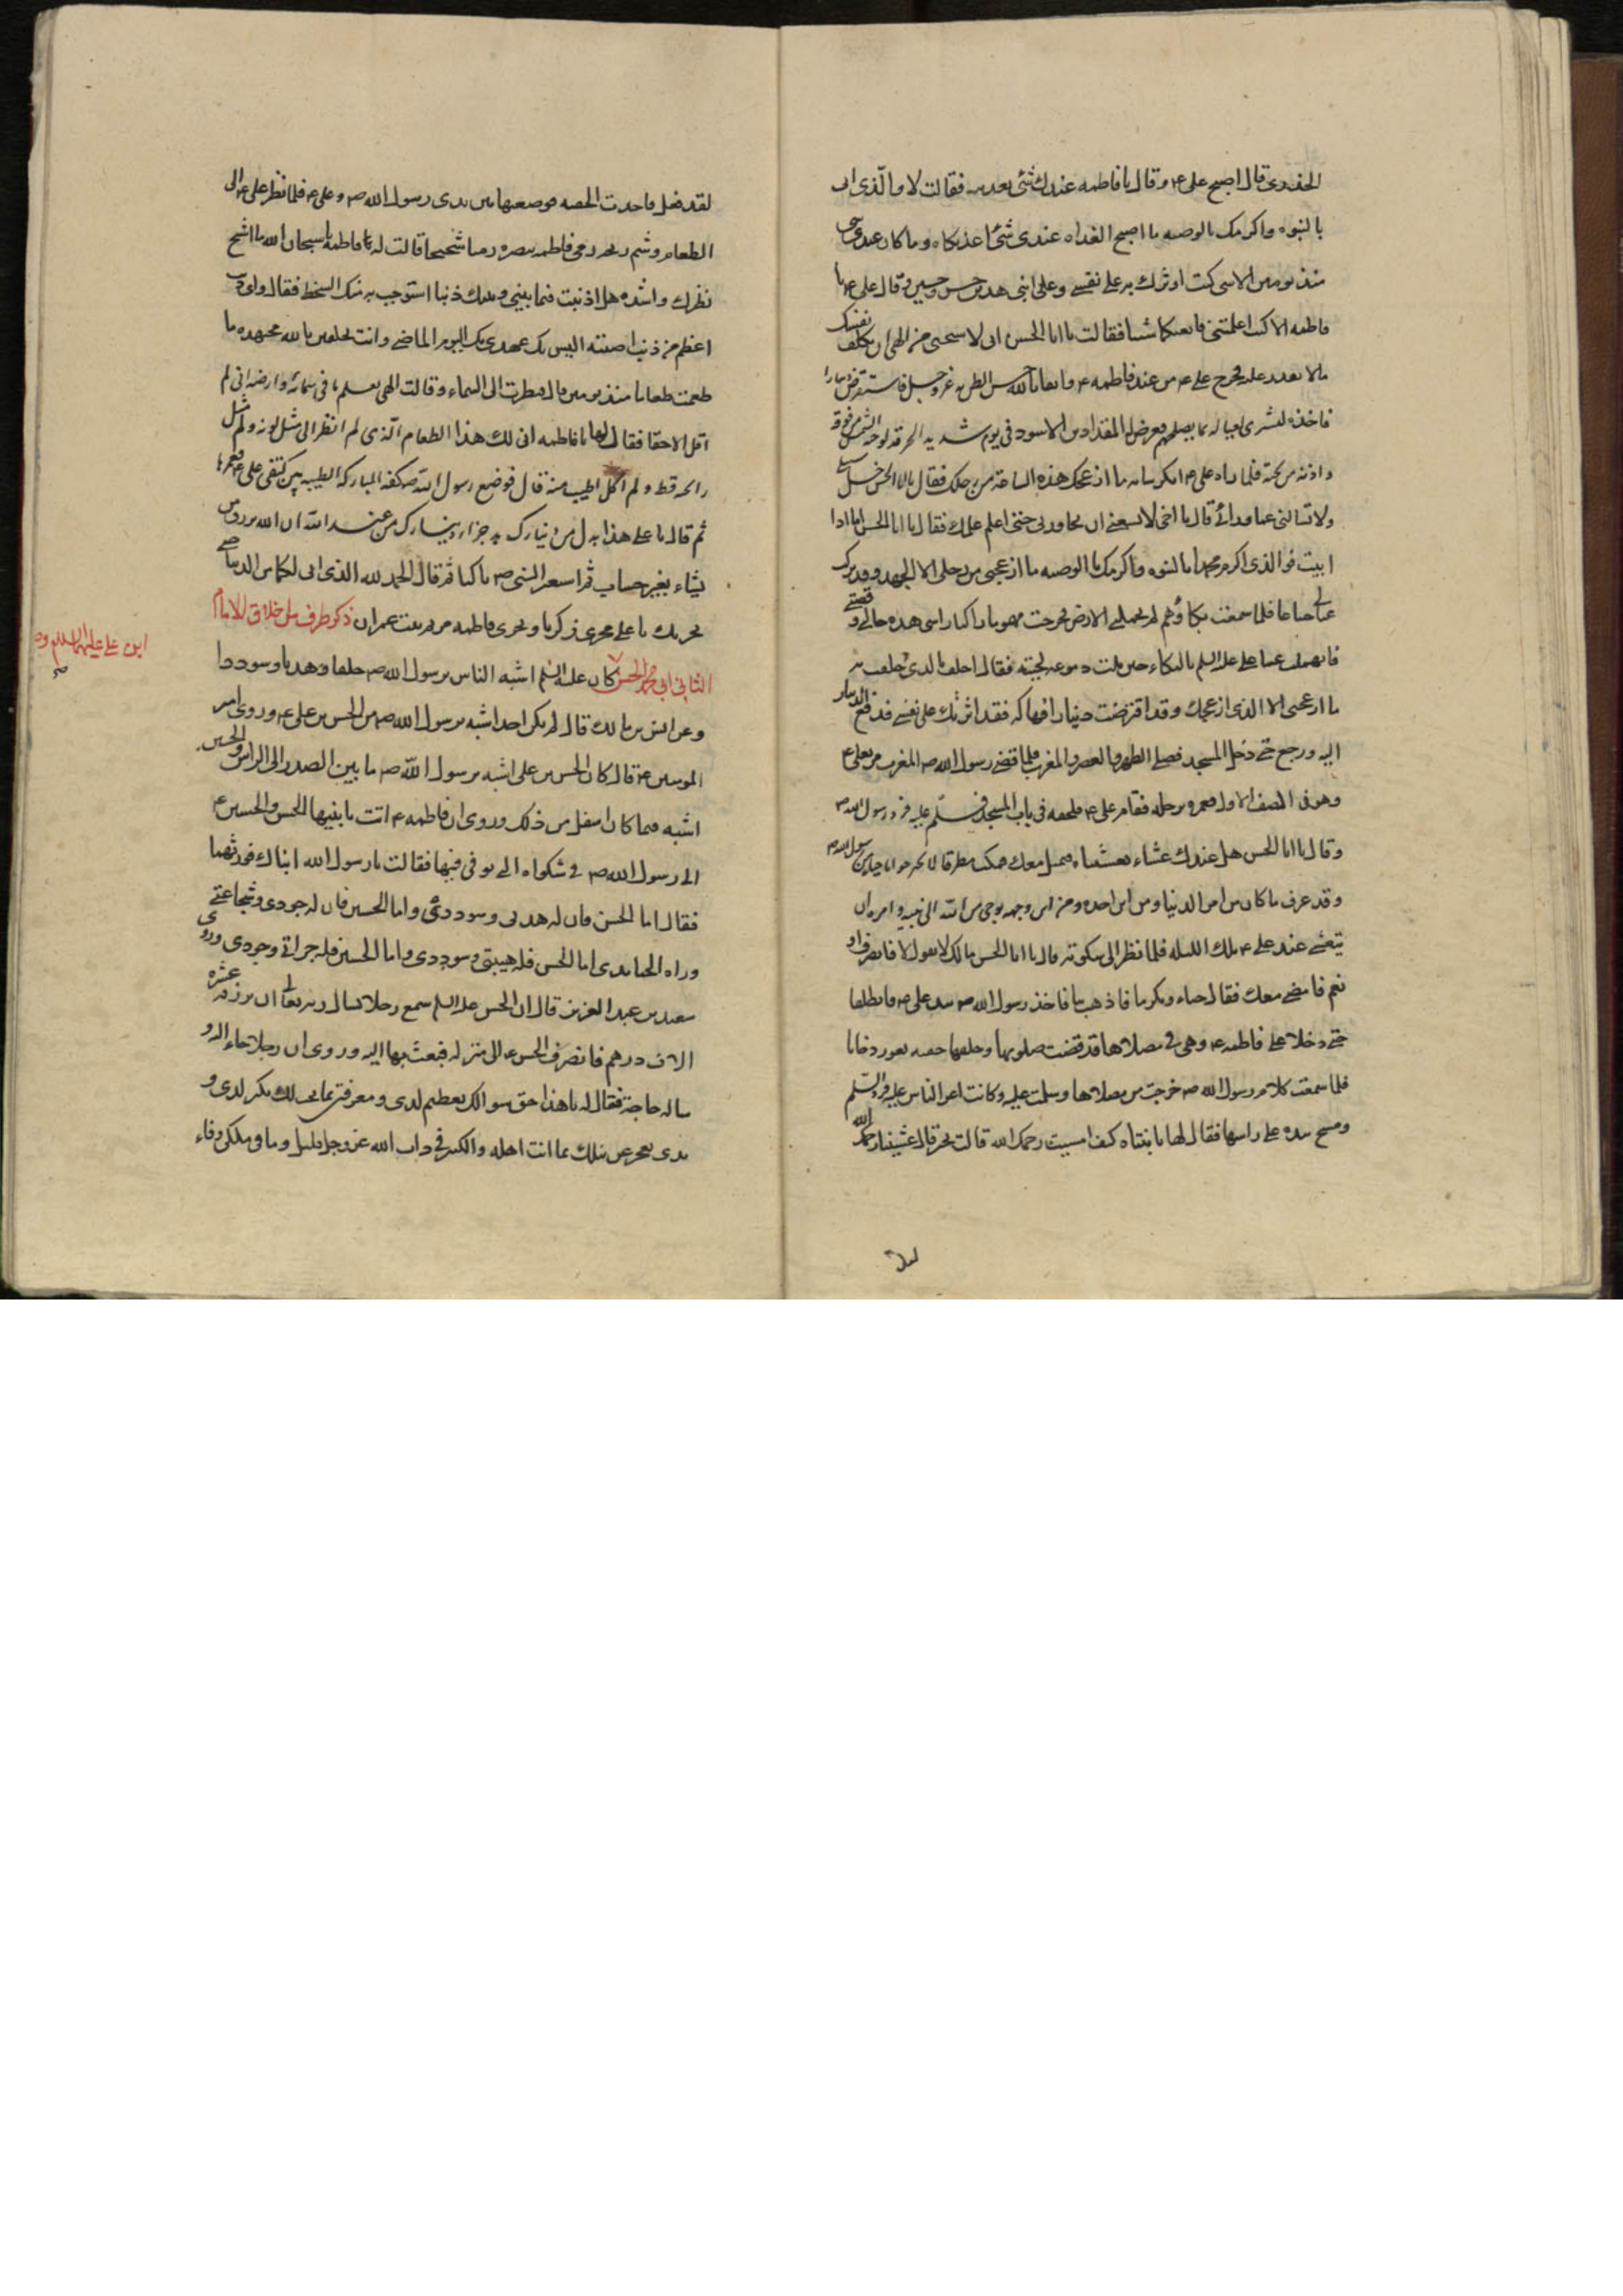 الخدری قال اصبح علی ۴ وقال یا فاطمه عندك شئ تغدینیه فقالت لا والذی ابی
بالنبوه واكرمك بالوصیه ما اصبح الغداه عندی شئ اغذیكاه وما كان عندی شئ
منذ یومین الا شی كنت اوثرك به علی نفسی وعلی ابنی هذین حسن وحسین وقال علی ۴ یا
فاطمه الا كنت اعلمتنی فابغیكم شیئا فقالت یا ابا الحسن انی لاستحیی من الهی ان تكلف نفسك
ما لا تقدر علیه فخرج علی ۴ من عند فاطمه ۴ واثقا بالله حسن الظن به عز وجل فاستقرض دینارا
فاخذه لیشتری لعیاله ما یصلحهم فعرض له المقداد بن الاسود فی یوم شدید الحر قد لوحته الشمس من فوقه
واذته من تحته فلما راه علی ۴ انكر شانه ما ازعجك هذه الساعة من رحلك فقال یا ابا الحسن خل سبیلی
ولا تسالنی عما ورائی قال یا اخی لا یسعنی ان تجاوزنی حتی اعلم علمك فقال یا ابا الحسن اما اذا
ابیت فوالذی اكرم محمدا بالنبوه واكرمك بالوصیه ما ازعجنی من رحلی الا الجهد وقد تركت
عیالی جیاعا فلما سمعت بكاؤهم لم تحملنی الارض فخرجت مهموما راكبا راسی هذه حالی و قصتی
فانهملت عینا علی علیه السلم بالبكاء حتی بلت دموعه لحیته فقال احلف بالذی حلفت به
ما ازعجنی الا الذی ازعجك وقد اقترضت دینارا فهاكه فقد اثرتك علی نفسی فدفع الدینار
الیه ورجع حتی دخل المسجد فصلی الظهر والعصر والمغرب فلما قضی رسول الله ص المغرب مر بعلی ۴
وهو فی الصف الاول فغمزه برجله فقام علی ۴ فلحقه فی باب المسجد فسلم علیه فرد رسول الله ص
وقال یا ابا الحسن هل عندك عشاء تعشیناه فنمیل معك فمكث مطرقا لا یحیر جوابا حیاء من رسول الله ص
وقد عرف ما كان من امر الدینار ومن این اخذه ومن این وجهه بوحی من الله الی نبیه وامره ان
یتعشی عند علی ۴ تلك اللیله فلما نظر الی سكوته قال یا ابا الحسن مالك لا تقول لا فانصرف او
نعم فامضی معك فقال حیاء وتكرما فاذهب بنا فاخذ رسول الله ص بید علی ۴ فانطلقا
حتی دخلا علی فاطمه ۴ وهی فی مصلاها قد قضت صلوتها وخلفها جفنه تفور دخانا
فلما سمعت كلام رسول الله ص خرجت من مصلاها وسلمت علیه وكانت اعز الناس علیه فرد السلم
ومسح بیده علی راسها فقال لها یا بنتاه كیف امسیت رحمك الله قالت بخیر قال عشینا رحمك الله
لقد فعل فاخذت الجفنه فوضعتها بین یدی رسول الله ص وعلی ۴ فلما نظر علی ۴ الی
الطعام وشم ریحه رمی فاطمه ببصره رمیا شحیحا قالت له فاطمه یا سبحان الله ما اشح
نظرك واشده هل اذنبت فیما بینی وبینك ذنبا استوجب به منك السخط فقال وای ذنب
اعظم من ذنب اصبته الیس بك عهدی بك الیوم الماضی وانت تحلفین بالله مجتهده ما
طعمت طعاما منذ یومین قال فنظرت الی السماء وقالت الهی یعلم ما فی سمائه وارضه انی لم
اقل الا حقا فقال لها یا فاطمه انی لك هذا الطعام الذی لم انظر الی مثل لونه ولم اشم مثل
رائحته قط ولم اكل اطیب منه قال فوضع رسول الله ص كفه المباركه الطیبه بین كتفی علی ۴ فغمزها
ثم قال یا علی هذا بدل من دینارك به جزاء دینارك من عند الله ان الله یرزق من
یشاء بغیر حساب ثم استعبر النبی ص باكیا ثم قال الحمد لله الذی ابی لكما من الدنیا حتی
یجریك یا علی مجری زكریا ویجری فاطمه مریم بنت عمران ذكر طرف من اخلاق الامام
الثانی ابی محمد الحسن كان علیه السلم اشبه الناس برسول الله ص خلقا وهدیا وسوددا
ابن علی علیهما السلم
صح
وعن انس بن مالك قال لم یكن احد اشبه برسول الله ص من الحسن بن علی ۴ وروی امیر
المومنین ۴ قال كان الحسن بن علی اشبه برسول الله ص ما بین الصدر الی الراس والحسین
اشبه فیما كان اسفل من ذلك وروی ان فاطمه ۴ اتت بابنیها الحسن والحسین ۴
الی رسول الله ص فی شكواه الذی توفی فیها فقالت یا رسول الله ابناك فورثهما
فقال اما الحسن فان له هدیی وسوددی واما الحسین فان له جودی وشجاعتی
ورواه الجنابدی اما الحسن فله هیبتی وسوددی واما الحسین فله جراتی وجودی وروی
سعید بن عبد العزیز قال ان الحسن علیه السلم سمع رجلا یسال ربه تعالی ان یرزقه عشره
الاف درهم فانصرف الحسن ۴ الی منزله فبعث بها الیه وروی ان رجلا جاء الیه و
ساله حاجة فقال له یا هذا حق سوالك یعظم لدی ومعرفتی بما یجب لك یكبر لدی و
یدی تعجز عن نیلك بما انت اهله والكثیر فی ذات الله عز وجل قلیل وما فی ملكی وفاء